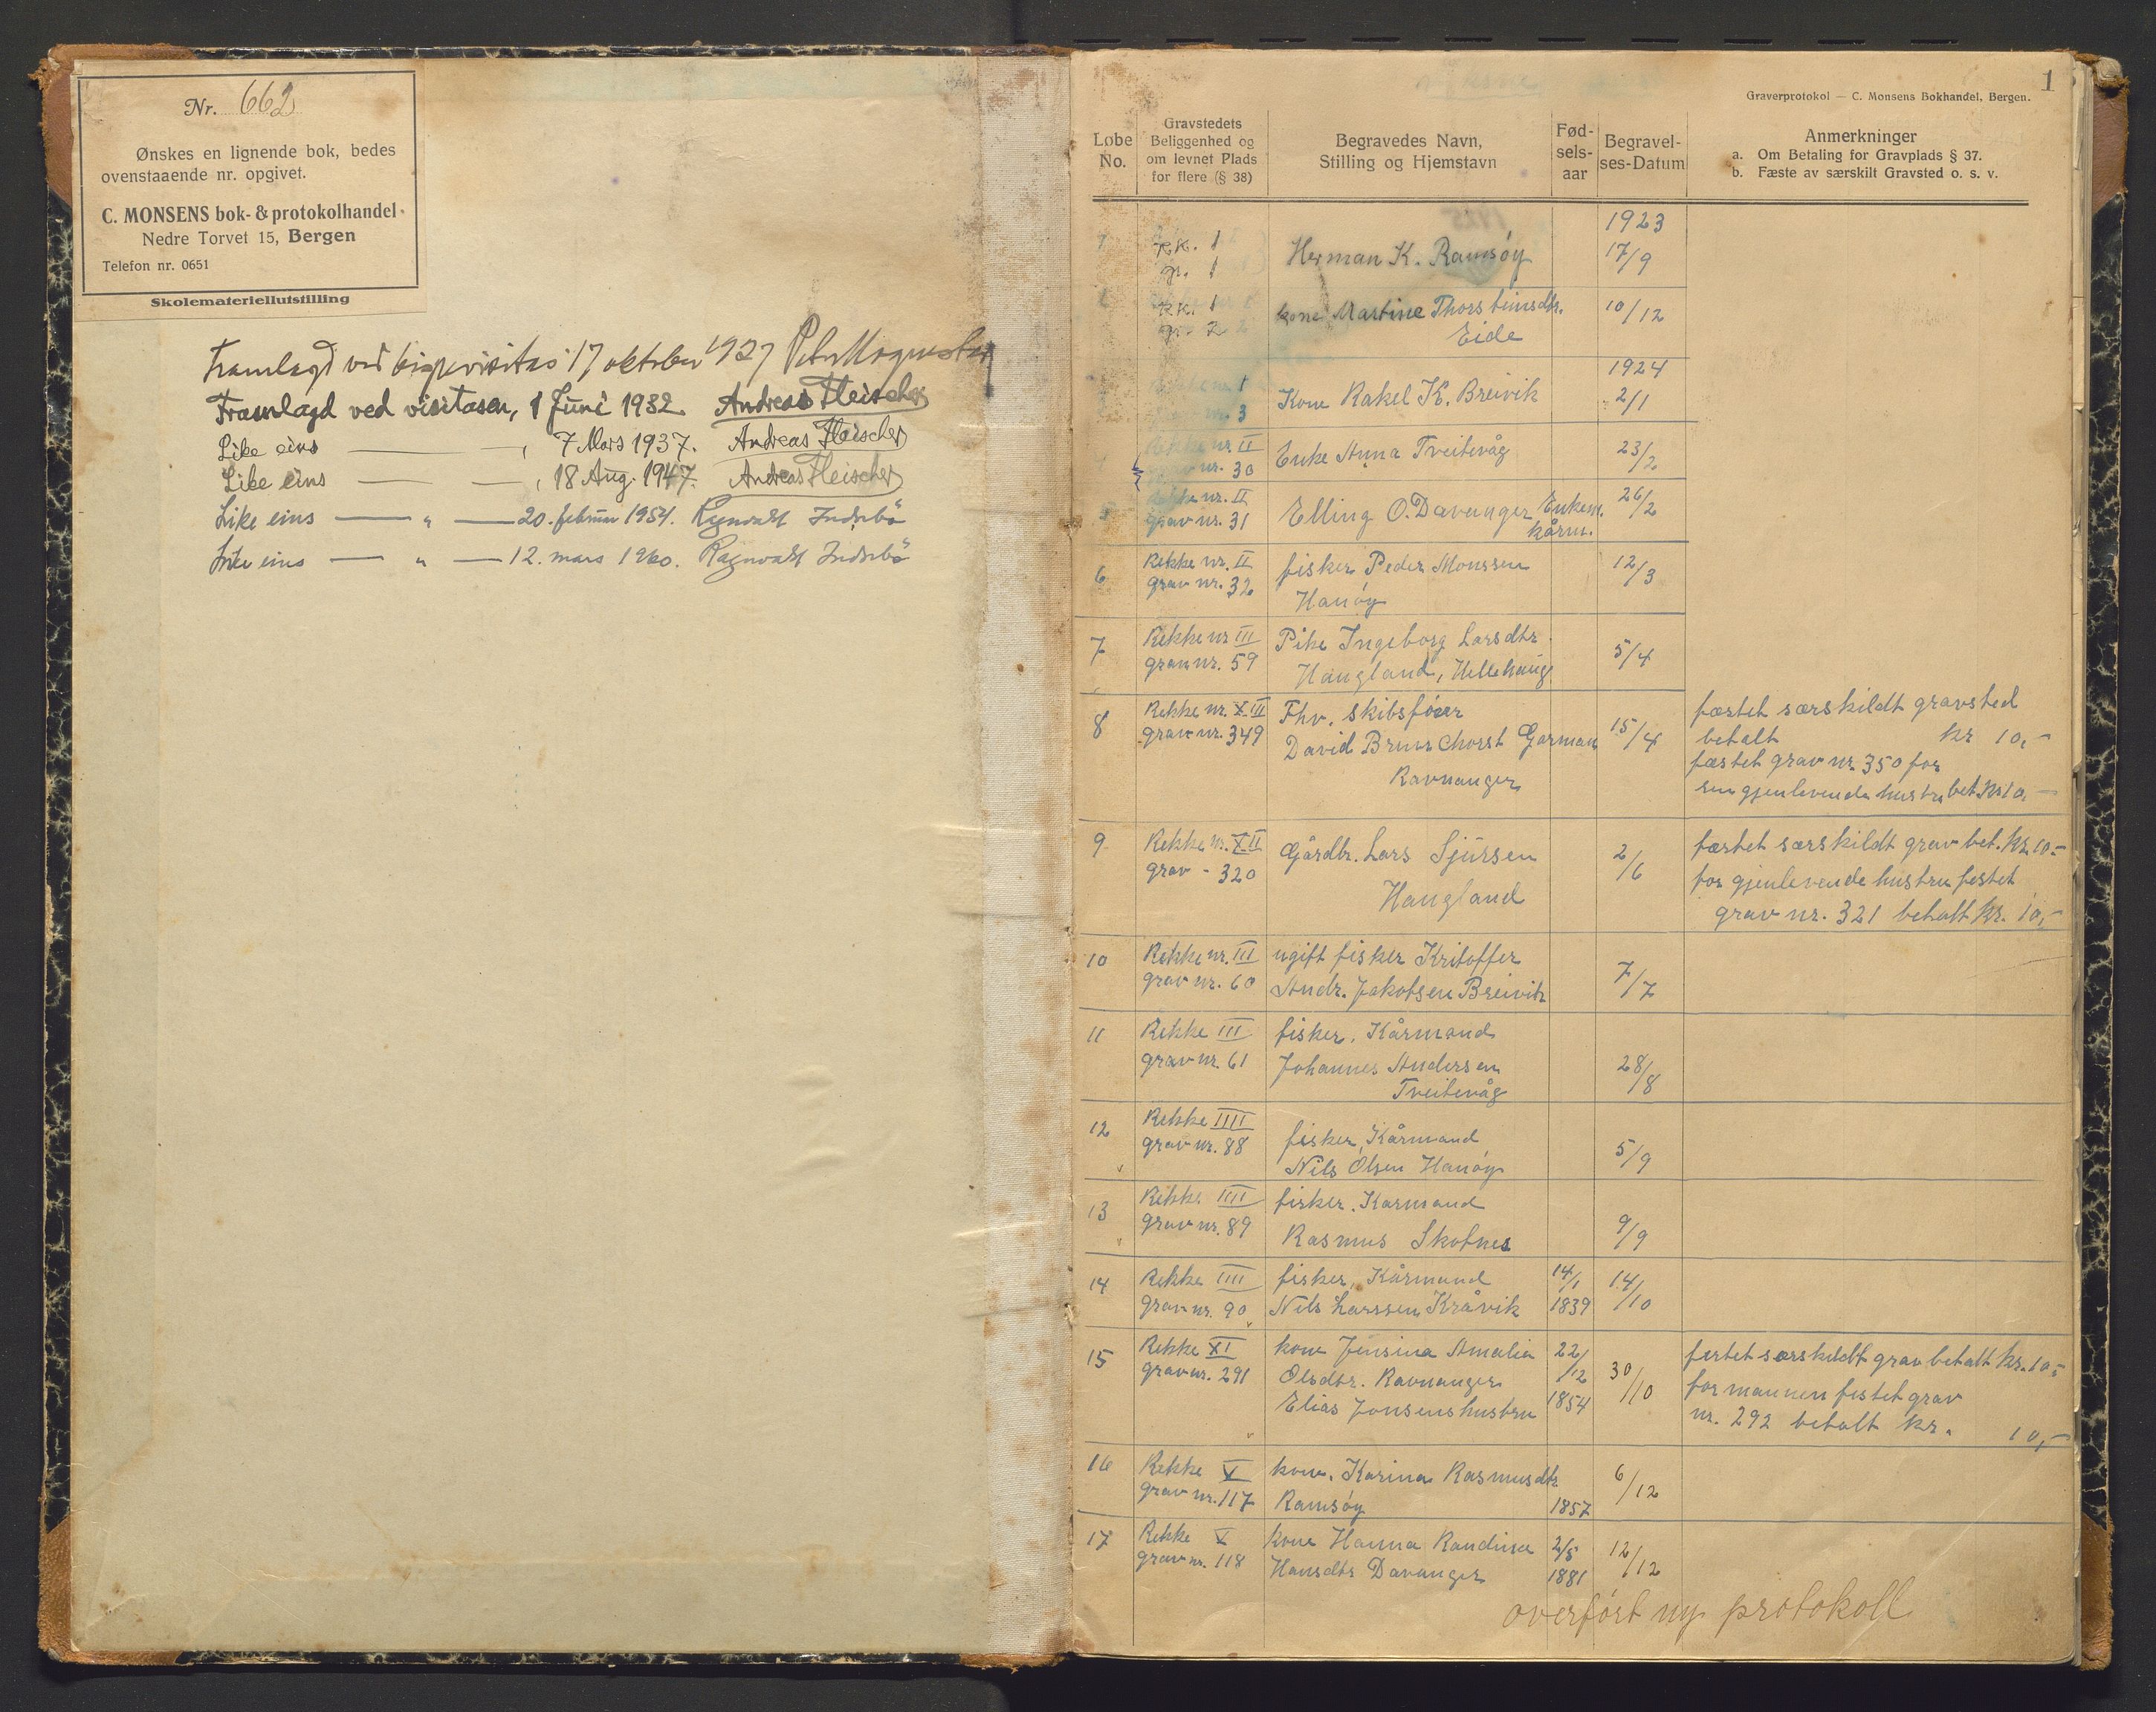 Nr. 662
Ønskes en lignende bok, bedes
ovenstaaende nr. opgivet.
C. MONSENS bok- & protokolhandel
Nedre Torvet 15, Bergen
Telefon nr. 0651
Skolemateriellutstilling
Framlagd ved bispevisitas 17 oktober 1927
Framlagd ved visitasen, 1 Juni 1932. Andreas Fleischer
Like eins — „ 7 Mars 1937. Andreas Fleischer
Like eins — — „ 18 Aug. 1947. Andreas Fleischer
Like eins — „ — 20. februar 1954. Ragnvald Indrebø
Like eins — „ — 12. mars 1960. Ragnvald Indrebø
1
Graverprotokol — C. Monsens Bokhandel, Bergen.
Løbe No.
Gravstedets Beliggenhed og om levnet Plads for flere (§ 38)
Begravedes Navn, Stilling og Hjemstavn
Fødselsaar
Begravelses-Datum
Anmerkninger
a. Om Betaling for Gravplads § 37.
b. Fæste av særskilt Gravsted o. s. v.
1923
1 Rk. 1 Herman K. Ramsøy 17/9
gr. 1
Rk. 1 kone Martine Thorsteinsdtr. 10/12
gr. 2 Eide
1924
Rekke nr. 1 Kone Rakel K. Breivik 2/1
3
Rekke nr. II Enke Anna Tveitevåg 23/2
grav nr. 30
Rekke nr. II Elling O. Davanger Enkem. 26/2
grav nr. 31 kårm.
6 Rekke nr. II fisker Peder Monssen 12/3
grav nr. 32 Hanøy
7 Rekke nr III Pike Ingeborg Larsdtr. 5/4
grav nr. 59 Haugland, Hellehaug
8 Rekke nr. XIII Fhv. skibsfører 15/4 fæstet særskildt gravsted
grav nr. 349 David Bruns Chorst Garman betalt kr 10,-
Ravnanger fæstet grav nr. 350 for
sin gjenlevende hustru bet. kr 10,-
9 Rekke nr. XII Gårdbr. Lars Sjursen 2/6 fæstet særskildt grav bet. kr. 10.-
grav - 320 Haugland for gjenlevende hustru festet
grav nr. 321 betalt kr. 10,-
10 Rekke nr. III ugift fisker Kritoffer 7/7
grav nr. 60 Andr. Jakobsen Breivik
11 Rekke III fisker. Kårmand 28/8
grav nr. 61 Johannes Andersen
Tveitevåg
12 Rekke IIII fisker, Kårmand 5/9
grav nr. 88 Nils Olsen Hanøy
13 Rekke IIII fisker. Karmand 9/9
grav nr. 89 Rasmus Skotnes
14 Rekke IIII fisker, Kårmand 14/1 14/10
grav nr. 90 Nils Larssen Kråvik 1839
15 Rekke XI kone Jensina Amalia 22/12 30/10 festet særskildt grav betalt kr. 10,-
grav nr. 291 Olsdtr. Ravnanger 1854 for mannen festet grav
Elias Jonsens hustru nr. 292 betalt kr. 10,-
16 Rekke V kone. Karina Rasmusdtr 6/12
grav nr. 117 Ramsøy 1857
17 Rekke V kone Hanna Randina 2/5 12/12
grav nr. 118 Hansdtr Davanger 1881
overført ny protokoll